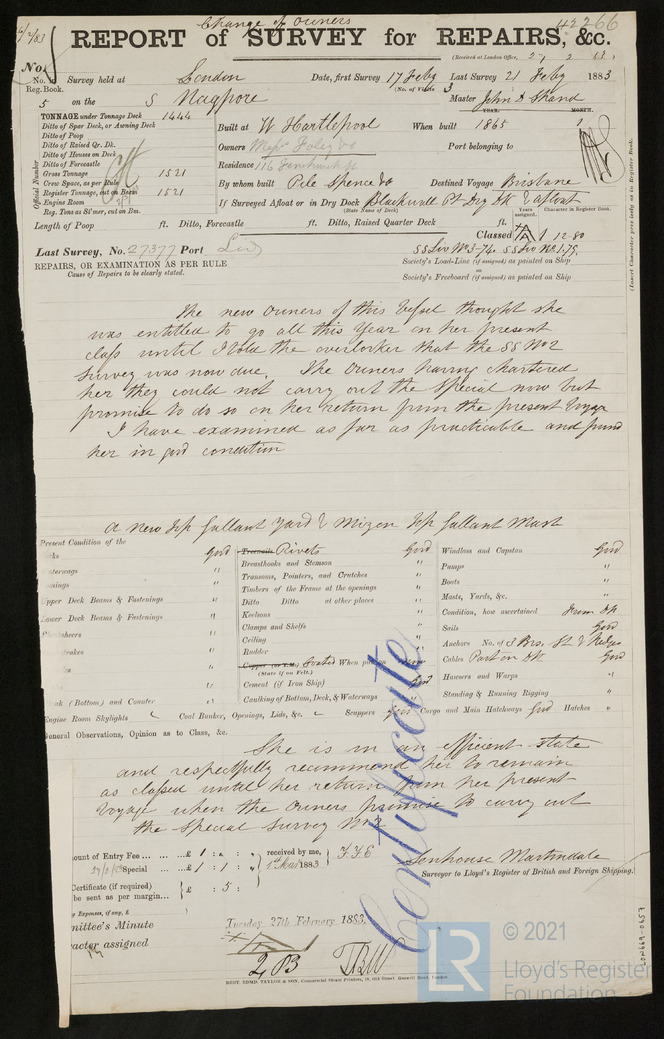 Change of Owners
42266
REPORT of SURVEY for REPAIRS, &c.
(Received at London Office, 27 2 83)
No. in Survey held at London Date, first Survey 17 Feby Last Survey 21 Feby 1883
Reg. Book. (No. of Visits 3
5 on the S Nagpore Master John D Shand
TONNAGE under Tonnage Deck 1444 YEAR. MONTH.
Ditto of Spar Deck, or Awning Deck Built at W Hartlepool When built 1865
Ditto of Poop
Ditto of Raised Qr. Dk. Owners Port belonging to
Ditto of Houses on Deck
Ditto of Forecastle Residence 116 Fenchurch St
Gross Tonnage 1521
Crew Space, as per Rule By whom built Pile Spence & Co Destined Voyage Brisbane
Register Tonnage, cut on Beam 1521
Engine Room If Surveyed Afloat or in Dry Dock Blackwall Pt Dry Dk & afloat
Reg. Tons as St'mer, cut on Bm. (State Name of Dock)
Official Number
Years assigned. Character in Register Book.
Length of Poop ft. Ditto, Forecastle ft. Ditto, Raised Quarter Deck ft.
Classed A 1 12.80
Last Survey, No. 27377 Port Liv SS Liv No 3-74. SS Liv No 1.79.
REPAIRS, OR EXAMINATION AS PER RULE Society's Load-Line (if assigned) as painted on Ship
Cause of Repairs to be clearly stated. or
Society's Freeboard (if assigned) as painted on Ship
(Insert Character precisely as in Register Book.
The new owners of this Vessel thought she
was entitled to go all this Year on her present
class until I told the overlooker that the SS No 2
Survey was now due. The Owners having chartered
her they could not carry out the Special now but
promise to do so on her return from the present Voyage
I have examined as far as practicable and found
her in good condition
A new Top Gallant Yard & Mizen Top Gallant Mast
Present Condition of the
Good Treenails Rivets Good Windlass and Capstan Good
" Breasthooks and Stemson " Pumps "
" Transoms, Pointers, and Crutches " Boats "
Upper Deck Beams & Fastenings " Timbers of the Frame at the openings " Masts, Yards, &c. "
Lower Deck Beams & Fastenings " Ditto Ditto at other places " Condition, how ascertained From Dk
" Keelsons " Sails Good
" Clamps and Shelfs " Anchors No. of 3 Brs, St & Kedges
" Ceiling " Cables Part on Dk Good
" Rudder " Hawsers and Warps "
" Copper (or Y.M.) Coated When put on now
(State if on Felt.) Standing & Running Rigging "
" Cement (if Iron Ship) Good
(Bottom) and Counter " Caulking of Bottom, Deck, & Waterways "
Engine Room Skylights Coal Bunker, Openings, Lids, &c. Scuppers Good Cargo and Main Hatchways Good Hatches "
General Observations, Opinion as to Class, &c.
She is in an efficient state
and respectfully recommend her to remain
as classed until her return from her present
Voyage when the Owners promise to carry out
the Special Survey No 2
Certificate
Amount of Entry Fee ... £ 1 : received by me,
Special ... £ 1 : 1 : 1st Mar 1883
Certificate (if required) £ : 5 :
be sent as per margin...
Expenses, if any, £
Senhouse Martindale
Surveyor to Lloyd's Register of British and Foreign Shipping.
Committee's Minute Tuesday 27th February 1883.
Character assigned
REPT. EDMD. TAYLOR & SON,
LON669-0657
LR
© 2021
Lloyd's Register
Foundation